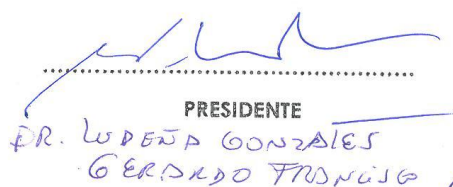 PRESIDENTE
DR. LUDEÑA GONZALES
GERARDO FRANCISCO